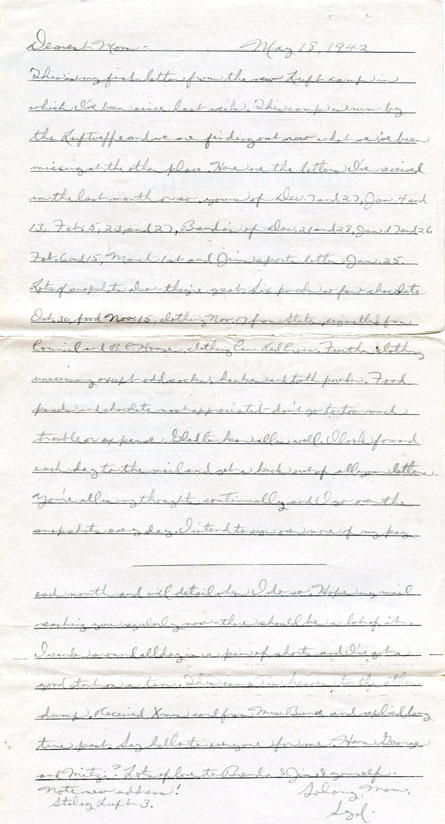 Dearest Mom - May 18, 1942
This is my first letter from the new Luft camp in
which I've been since last week. This camp is run by
the Luftwaffe and we are finding out now what we've been
missing at the other place. Here are the letters I've received
in the last month or so, yours of Dec. 7 and 27, Jan 4 and
13, Feb. 5, 23, and 27, Brenda's of Dec. 21 and 28, Jan 17 and 26
Feb. 6 and 15, March 1st and Jim's sports letter Jan. 25.
Lots of snapshots also - they're great. Six parcels so far chocolate
Oct. 30, food Nov. 15, clothing Nov. 17 from States, cigarettes from
Council and B.C. House, clothing Can. Red Cross. Further clothing
unnecessary except odd socks, hankies and tooth powder. Food
parcels and chocolate most appreciated - don't go to too much
trouble or expense. Glad to hear all is well. I look forward
each day to the mail and get a kick out of all your letters.
You're all in my thoughts continually and I go over the
snapshots every day. I intend to sign over more of my pay
each month and will detail when I do so. Hope my mail
reaching you regularly now - there should be a lot of it.
I walk around all day in a pair of shorts and I've got a
good start on a tan. This camp is heaven to the other
dump. Received Xmas card from Mrs. and replied long
time past. Say hello to everyone for me. How's George
and Mitzi? Lots of love to Brenda & Jim & yourself.
Note new address! So long Mom,
Stalag Luft 3. Syd.